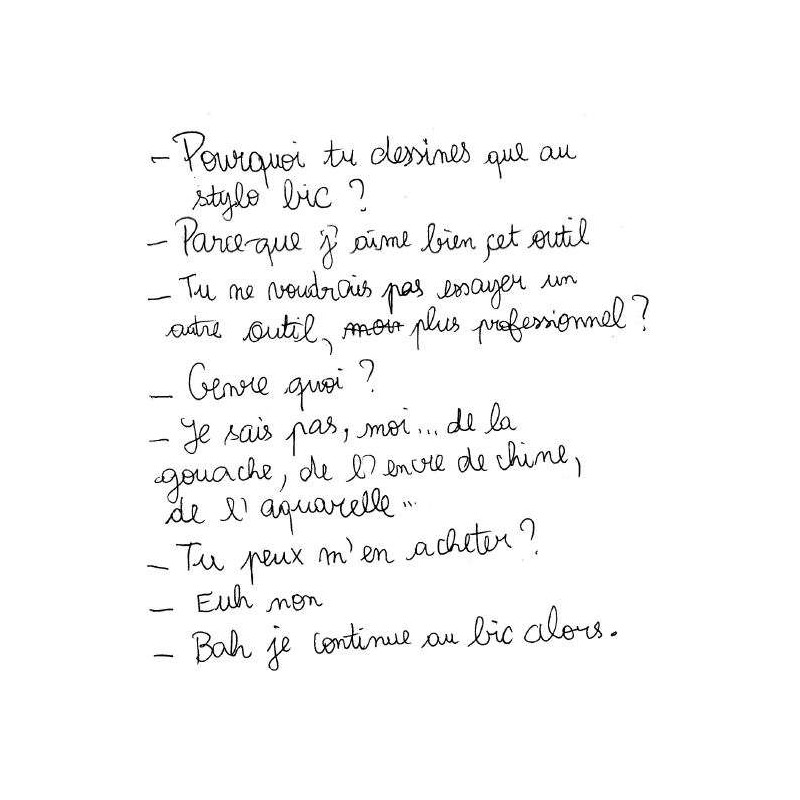 - Pourquoi tu dessines que au
stylo bic ?
- Parce-que j'aime bien cet outil
- Tu ne voudrais pas essayer un
autre outil, plus professionnel ?
- Genre quoi ?
- Je sais pas, moi... de la
gouache, de l'encre de chine,
de l'aquarelle...
- Tu peux m'en acheter ?
- Euh non
- Bah je continue au bic alors.